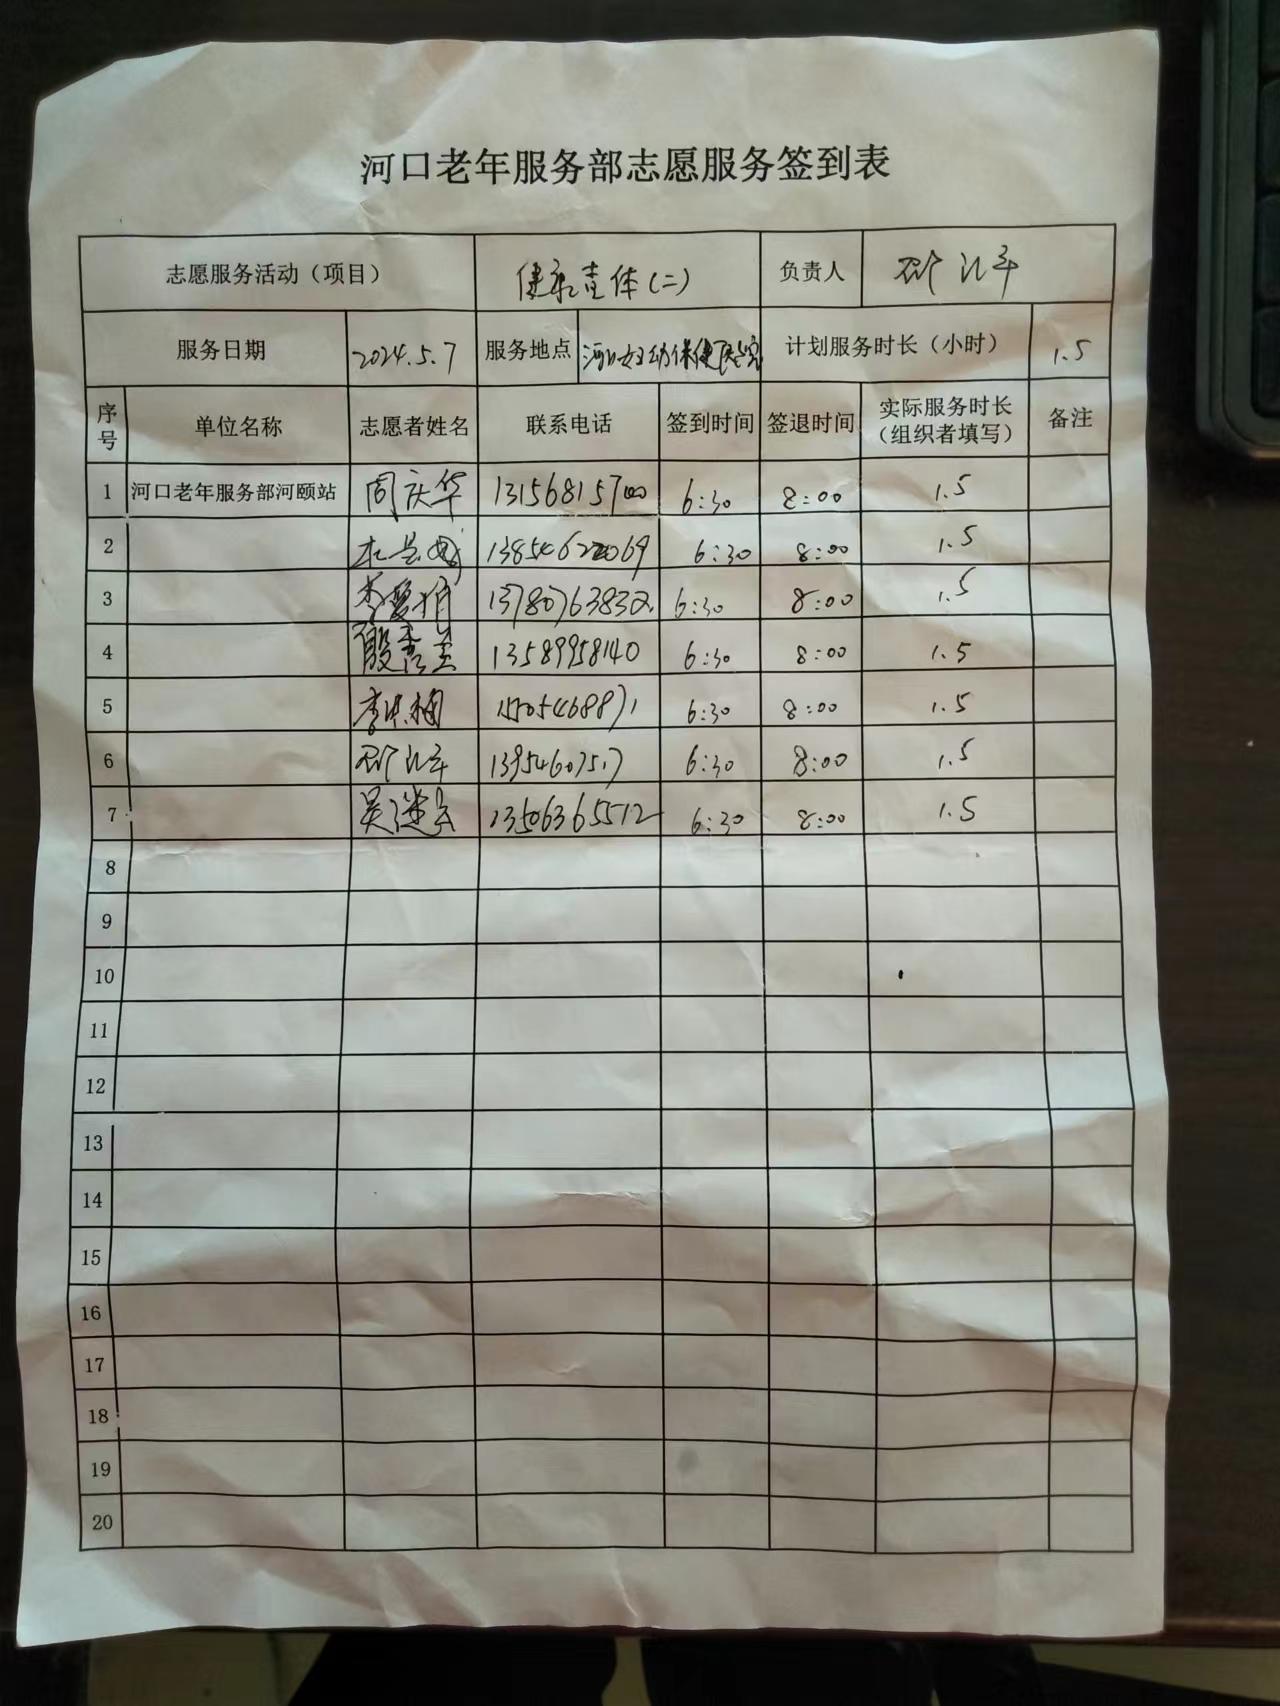 河口老年服务部志愿服务签到表
志愿服务活动（项目） 健康查体(二) 负责人
服务日期 2024.5.7 服务地点 河口妇幼保健医院 计划服务时长（小时） 1.5
序号 单位名称 志愿者姓名 联系电话 签到时间 签退时间 实际服务时长（组织者填写） 备注
1 河口老年服务部河颐站 周庆华 13156815700 6:30 8:00 1.5
2 13854622069 6:30 8:00 1.5
3 李爱楠 13780763832 6:30 8:00 1.5
4 殷秀兰 13589958140 6:30 8:00 1.5
5 6:30 8:00 1.5
6 6:30 8:00 1.5
7 13506365512 6:30 8:00 1.5
8
9
10
11
12
13
14
15
16
17
18
19
20